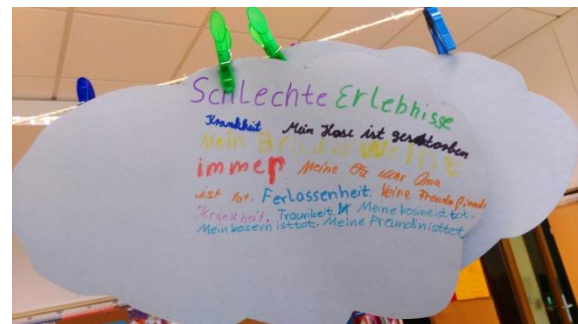 Schlechte Erlebnisse
Krankheit Mein Hase ist gestorben
Mein Bruder Weint
immer. Meine Oma
ist tot. Ferlassenheit. Keine Freunde finden
Krankheit. Traurikeit Meine kosine ist tot.
Mein ist tot. Meine Freundin ist tot